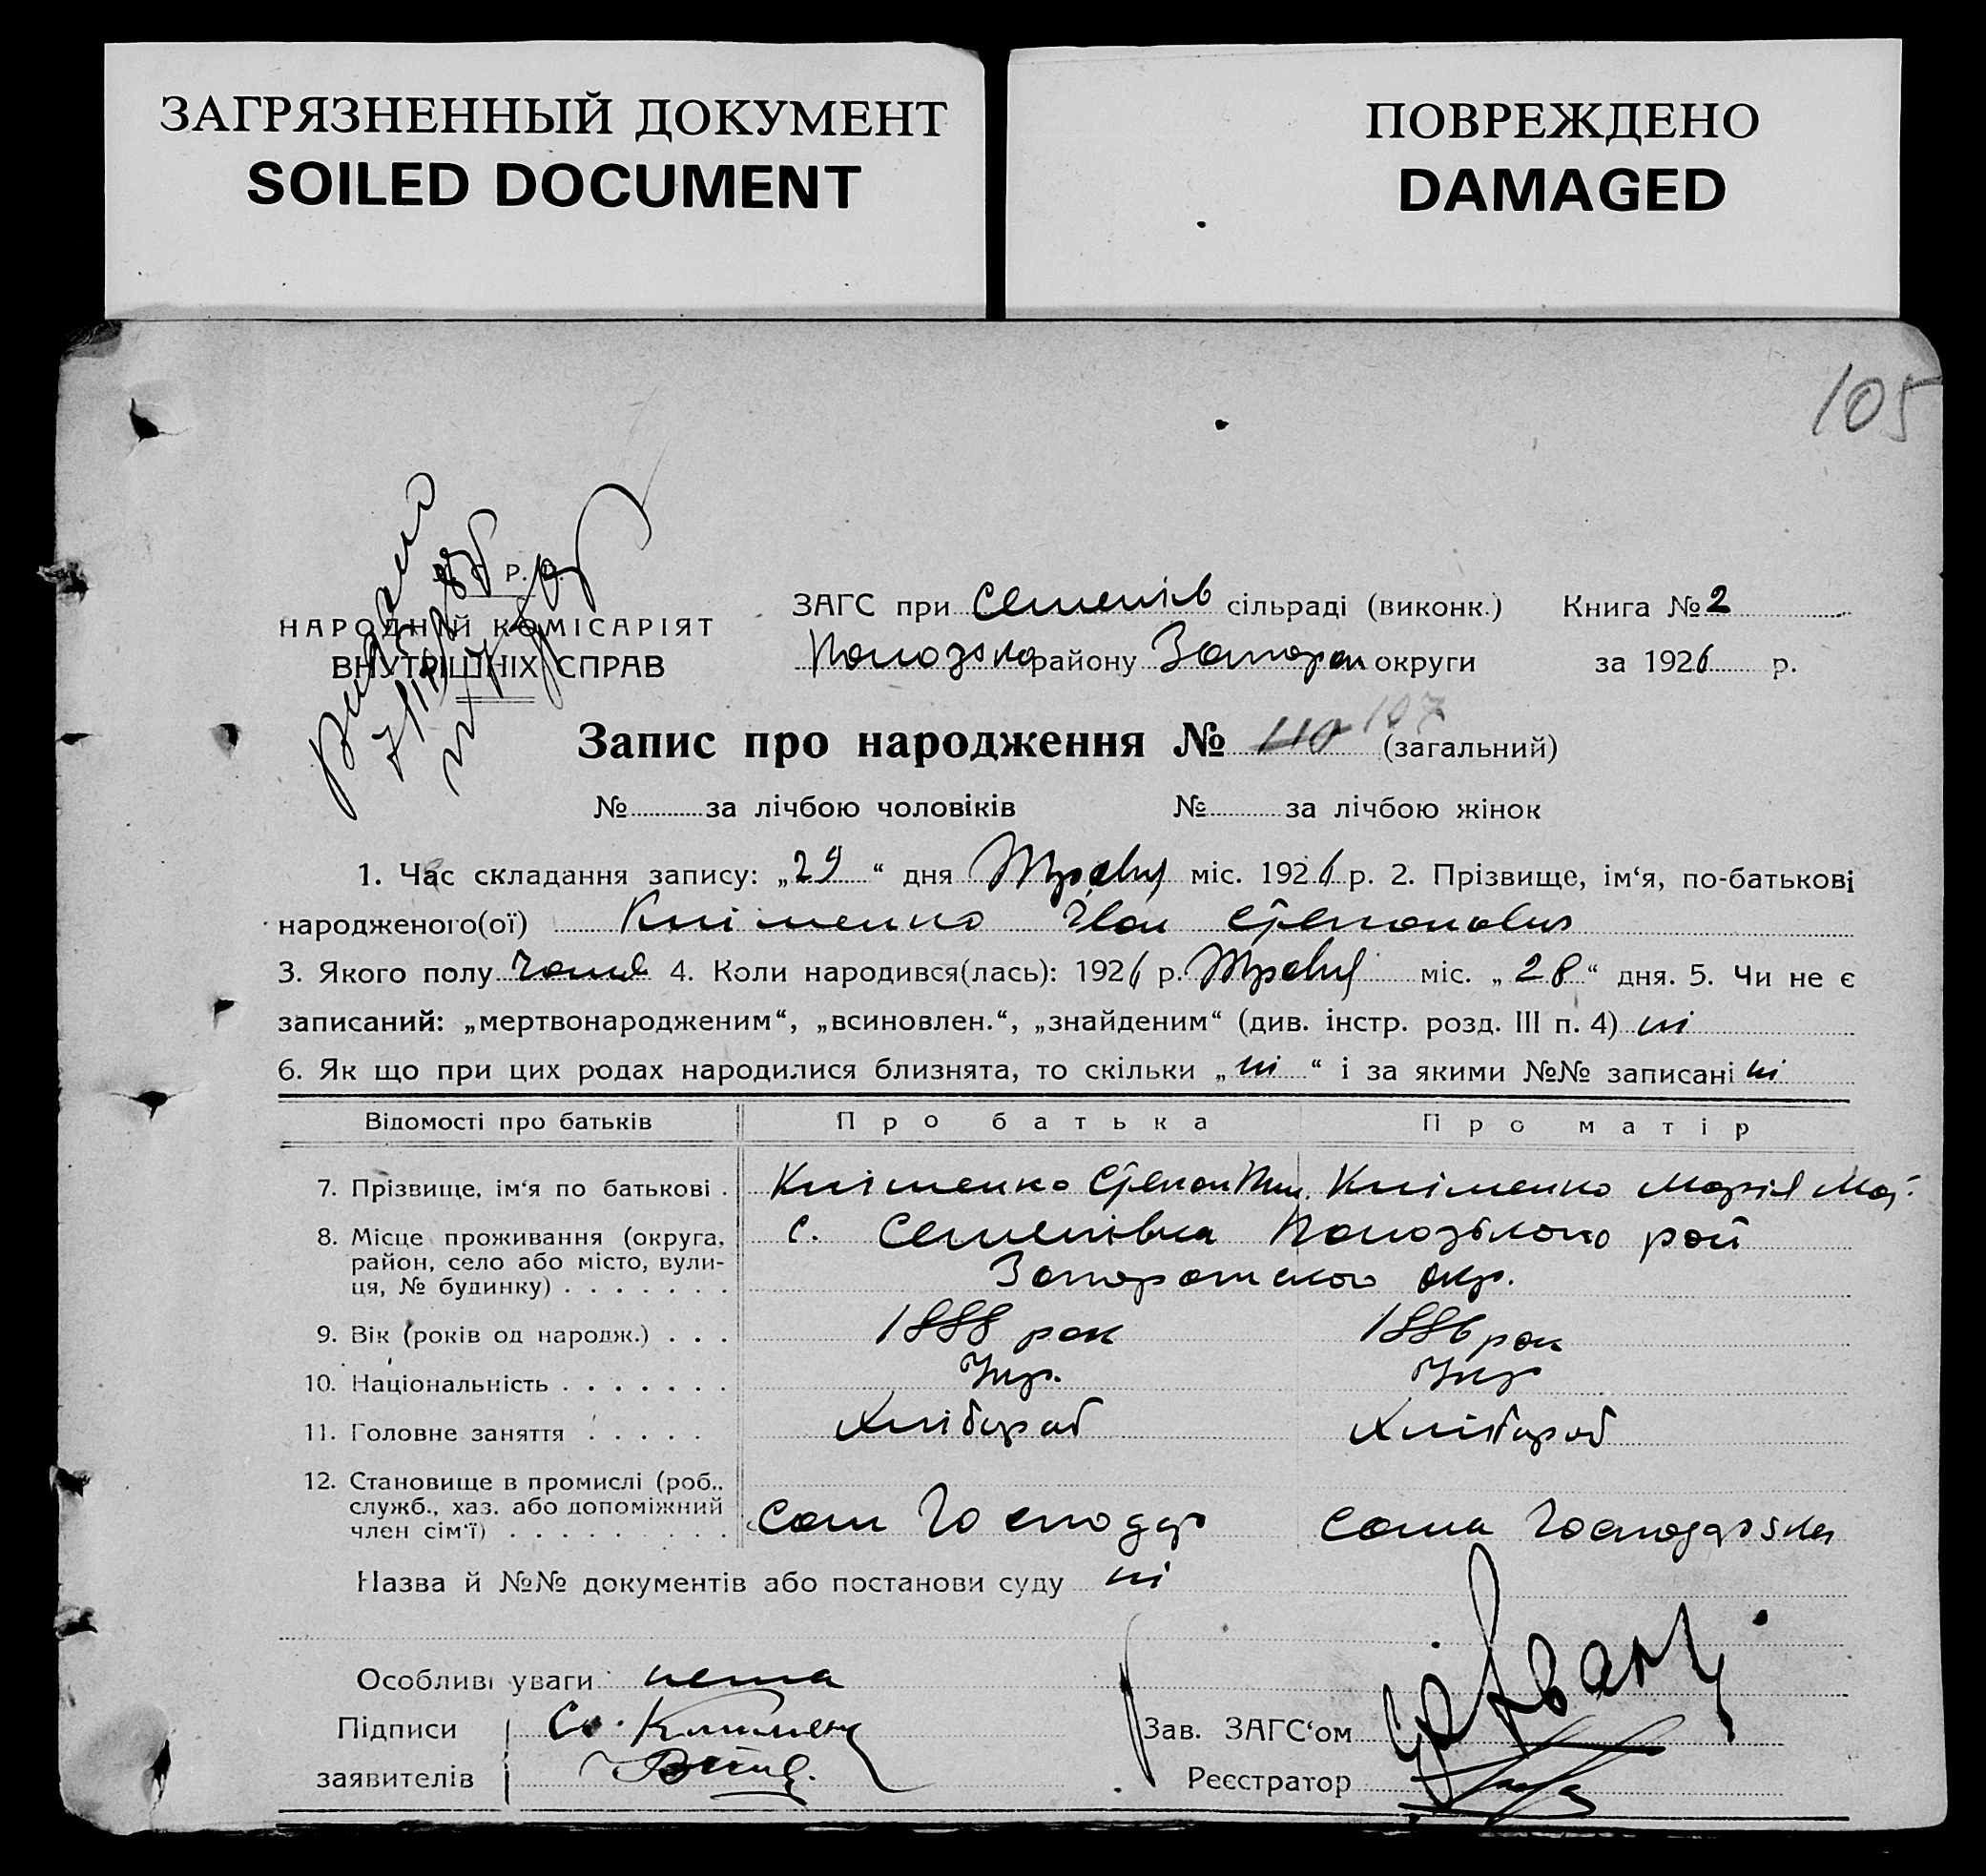 ЗАГРЯЗНЕННЫЙ ДОКУМЕНТ
SOILED DOCUMENT
ПОВРЕЖДЕНО
DAMAGED
105
НАРОДНИЙ КОМІСАРІЯТ
ВНУТРІШНІХ СПРАВ
ЗАГС при Семенів сільраді (виконк.) Книга № 2
району округи за 1926 р.
Запис про народження № 110 107 (загальний)
№ за лічбою чоловіків № за лічбою жінок
1. Час складання запису: „29“ дня Травня міс. 1926 р. 2. Прізвище, ім‘я, по-батькові
народженого(ої) Кліменко Іван Степанович
3. Якого полу 4. Коли народився(лась): 1926 р. Травня міс. „28“ дня. 5. Чи не є
записаний: „мертвонародженим“, „всиновлен.“, „знайденим“ (див. інстр. розд. III п. 4) ні
6. Як що при цих родах народилися близнята, то скільки „ні“ і за якими №№ записані ні
Відомості про батьків Про батька Про матір
7. Прізвище, ім‘я по батькові . Кліменко Степан Кліменко Марія
8. Місце проживання (округа, с. Семенівка Пологського рай
район, село або місто, вули- Запорожського окр.
ця, № будинку) . . . . . . .
9. Вік (років од народж.) . . . 1888 рок 1886 рок
10. Національність . . . . . . . Укр. Укр
11. Головне заняття . . . . . Хлібороб Хлібороб
12. Становище в промислі (роб.,
служб., хаз. або допоміжний
член сім‘ї) . . . . . . . . . сам Господар сама Господарька
Назва й №№ документів або постанови суду ні
Особливі уваги нема
Підписи Кліменко Зав. ЗАГС‘ом
заявителів Реєстратор